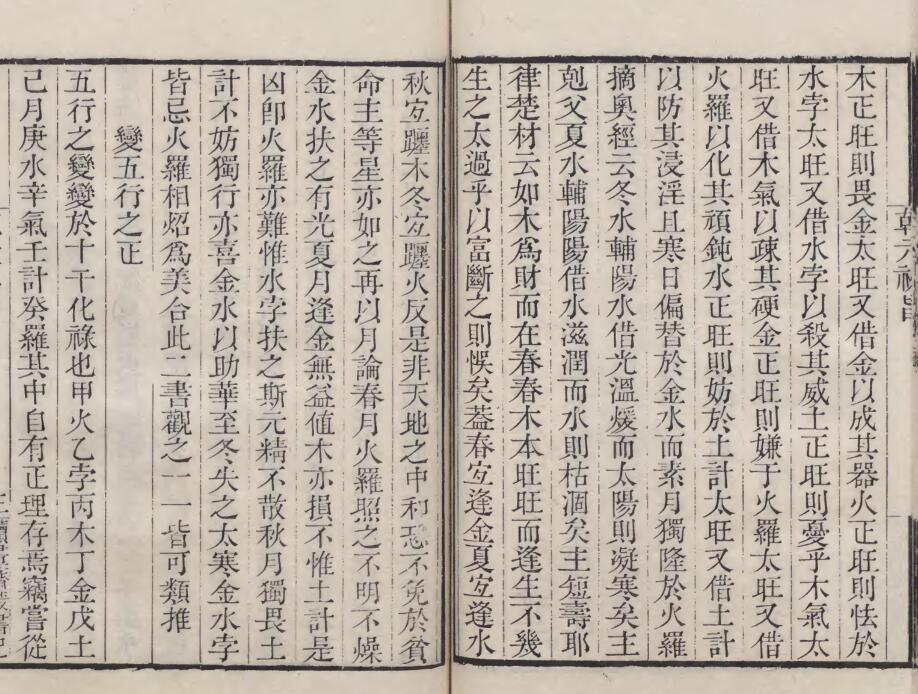 木正旺則畏金太旺又借金以成其器火正旺則怯於
水孛太旺又借水孛以殺其威土正旺則憂乎木氣太
旺又借木氣以疎其硬金正旺則嫌于火羅太旺又借
火羅以化其頑鈍水正旺則妨於土計太旺又借土計
以防其浸淫且寒日偏替於金水而素月獨隆於火羅
摘奧經云冬水輔陽水借光溫煖而太陽則凝寒矣主
剋父夏水輔陽陽借水滋潤而水則枯涸矣主短壽耶
律楚材云如木爲財而在春春木本旺旺而逢生不幾
生之太過乎以富斷之則悞矣葢春宐逢金夏宐逢水
秋宐躔木冬宐躔火反是非天地之中和恐不免於貧
命主等星亦如之再以月論春月火羅照之不明不燥
金水扶之有光夏月逢金無益値木亦損不惟土計是
凶卽火羅亦難惟水孛扶之斯元精不散秋月獨畏土
計不妨獨行亦喜金水以助華至冬失之太寒金水孛
皆忌火羅相炤爲美合此二書觀之一一皆可類推
變五行之正
五行之變變於十干化祿也甲火乙孛丙木丁金戊土
己月庚水辛氣壬計癸羅其中自有正理存焉竊嘗從